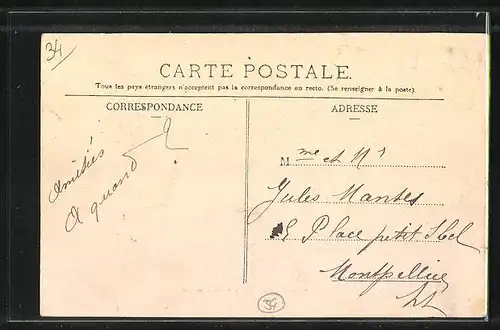 34
CARTE POSTALE.
Tous les pays étrangers n'acceptent pas la correspondance au recto. (Se renseigner à la poste).
CORRESPONDANCE
ADRESSE
Amitiés
A quand ?
Mme et Mr
Jules Mantes
Place petit Scel
Montpellier
34